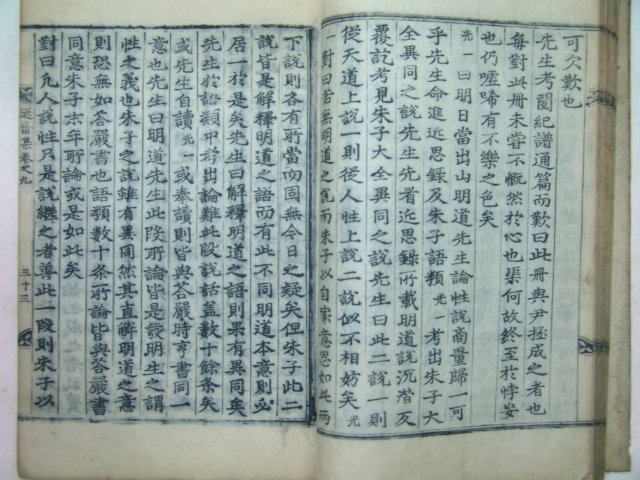 可欠歎也
先生考閱紀譜通篇而歎曰此冊與尹拯成之者也
每對此冊未嘗不慨然於心也渠何故終至於悖妄
也仍噓唏有不樂之色矣
光一曰明日當出山明道先生論性說商量歸一可
乎先生命進近思錄及朱子語類光一考出朱子大
全異同之說先生先看近思錄所載明道說沉潛反
覆訖考見朱子大全異同之說先生曰此二說一則
從天道上說一則從人性上說二說似不相妨矣光
一對曰若無明道之說而朱子以自家意思如此兩
下說則各有所當而固無今日之疑矣但朱子此二
說皆是解釋明道之語而有此不同明道本意則必
居一於是矣先生曰解釋明道之語則果有異同矣
先生於語類中考出論難此段說話盖數十餘條矣
或先生自讀光一或奉讀則皆與答嚴時亨書同一
意也先生曰明道先生此段所論皆是發明生之謂
性之義也朱子之說雖有異同然其直解明道之意
則恐無如答嚴書也語類數十條所論皆與答嚴書
同意朱子末年所論或是如此矣
對曰凡人說性只是說繼之者善此一段則朱子以
集卷之九
三十三